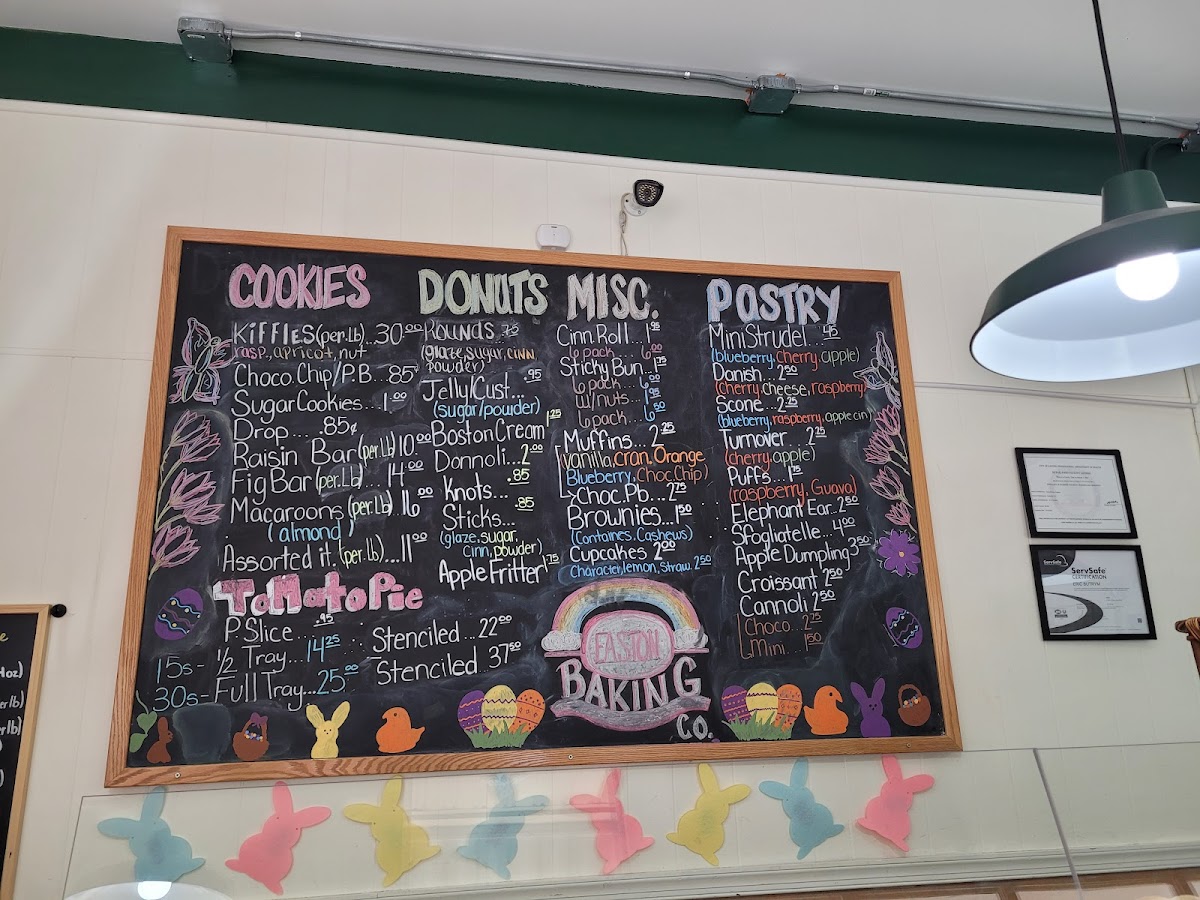 COOKIES
Kiffles (per.lb)...30.00
rasp, apricot, nut
Choco.Chip/P.B...85
Sugar Cookies...1.00
Drop....85¢
Raisin Bar (per.lb) 10.00
Fig Bar (per.Lb)...14.00
Macaroons (per.lb) 16.00
(almond)
Assorted it. (per.lb)...11.00
DONUTS
Rounds .75
(glaze, sugar, cinn
powder)
Jelly/Cust... .95
(sugar/powder)
Boston Cream 1.25
Donnoli...2.00
Knots... .85
Sticks... .85
(glaze, sugar,
cinn, powder)
Apple Fritter 1.75
MISC.
Cinn Roll...1.95
6 pack...6.00
Sticky Bun...1.75
6 pack...6.00
w/nuts...1.95
6 pack...6.50
Muffins...2.25
(vanilla, cran, Orange
Blueberry, Choc.Chip)
Choc.Pb...2.75
Brownies...1.50
(Containes, Cashews)
Cupcakes 2.00
Character, lemon, Straw. 2.50
PASTRY
Mini Strudel...45
(blueberry, Cherry, apple)
Danish...2.50
(Cherry, Cheese, raspberry)
Scone...2.25
(blueberry, raspberry, apple cin)
Turnover...2.25
(cherry, apple)
Puffs...1.75
(raspberry, Guava)
Elephant Ear..2.50
Sfogliatelle...4.00
Apple Dumpling 3.50
Croissant 2.50
Cannoli 2.50
Choco...2.75
Mini...1.50
ToMato Pie
P. Slice... .95
15s- 1/2 Tray...14.25
30s- Full Tray...25.00
Stenciled...22.00
Stenciled..37.50
EASTON
BAKING
CO.
ServSafe
CERTIFICATION